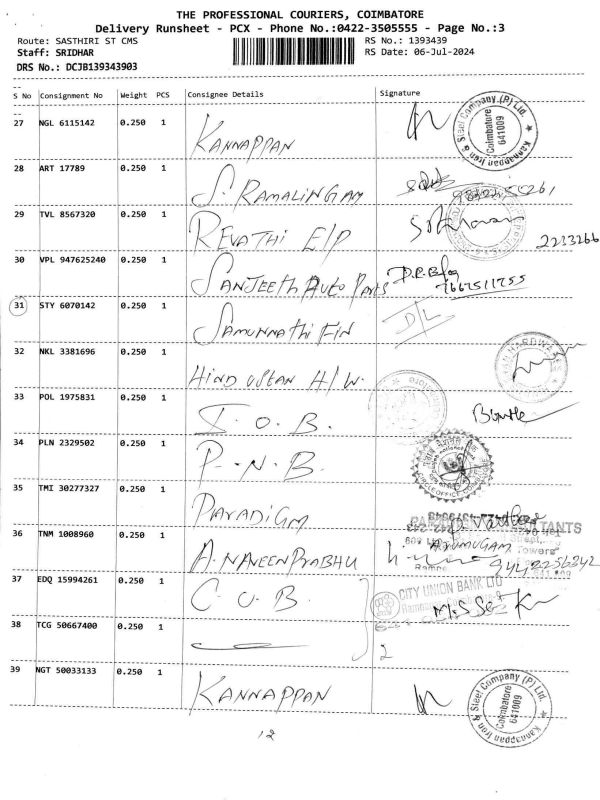 THE PROFESSIONAL COURIERS, COIMBATORE
Delivery Runsheet - PCX - Phone No.:0422-3505555 - Page No.:3
Route: SASTHIRI ST CMS RS No.: 1393439
Staff: SRIDHAR RS Date: 06-Jul-2024
DRS No.: DCJB139343903
S No Consignment No Weight PCS Consignee Details Signature
27 NGL 6115142 0.250 1 KANNAPPAN Kannappan Iron & Steel Company (P) Ltd. Coimbatore 641009
28 ART 17789 0.250 1 S. RAMALINGAM
29 TVL 8567320 0.250 1 REVATHI E/P 2233266
30 VPL 947625240 0.250 1 SANJEETH AUTO PARTS 7667511755
31 STY 6070142 0.250 1 SAMUNNATHI FIN D/L
32 NKL 3381696 0.250 1 HINDUSTAN H/W. HARDWARES
33 POL 1975831 0.250 1 I. O. B.
34 PLN 2329502 0.250 1 P. N. B. CIRCLE OFFICE
35 TMI 30277327 0.250 1 PARADIGM
36 TNM 1008960 0.250 1 A. NAVEEN PRABHU ARUMUGAM 9442256342
37 EDQ 15994261 0.250 1 C. U. B. CITY UNION BANK LTD
38 TCG 50667400 0.250 1 2
39 NGT 50033133 0.250 1 KANNAPPAN Kannappan Iron & Steel Company (P) Ltd. Coimbatore 641009
12